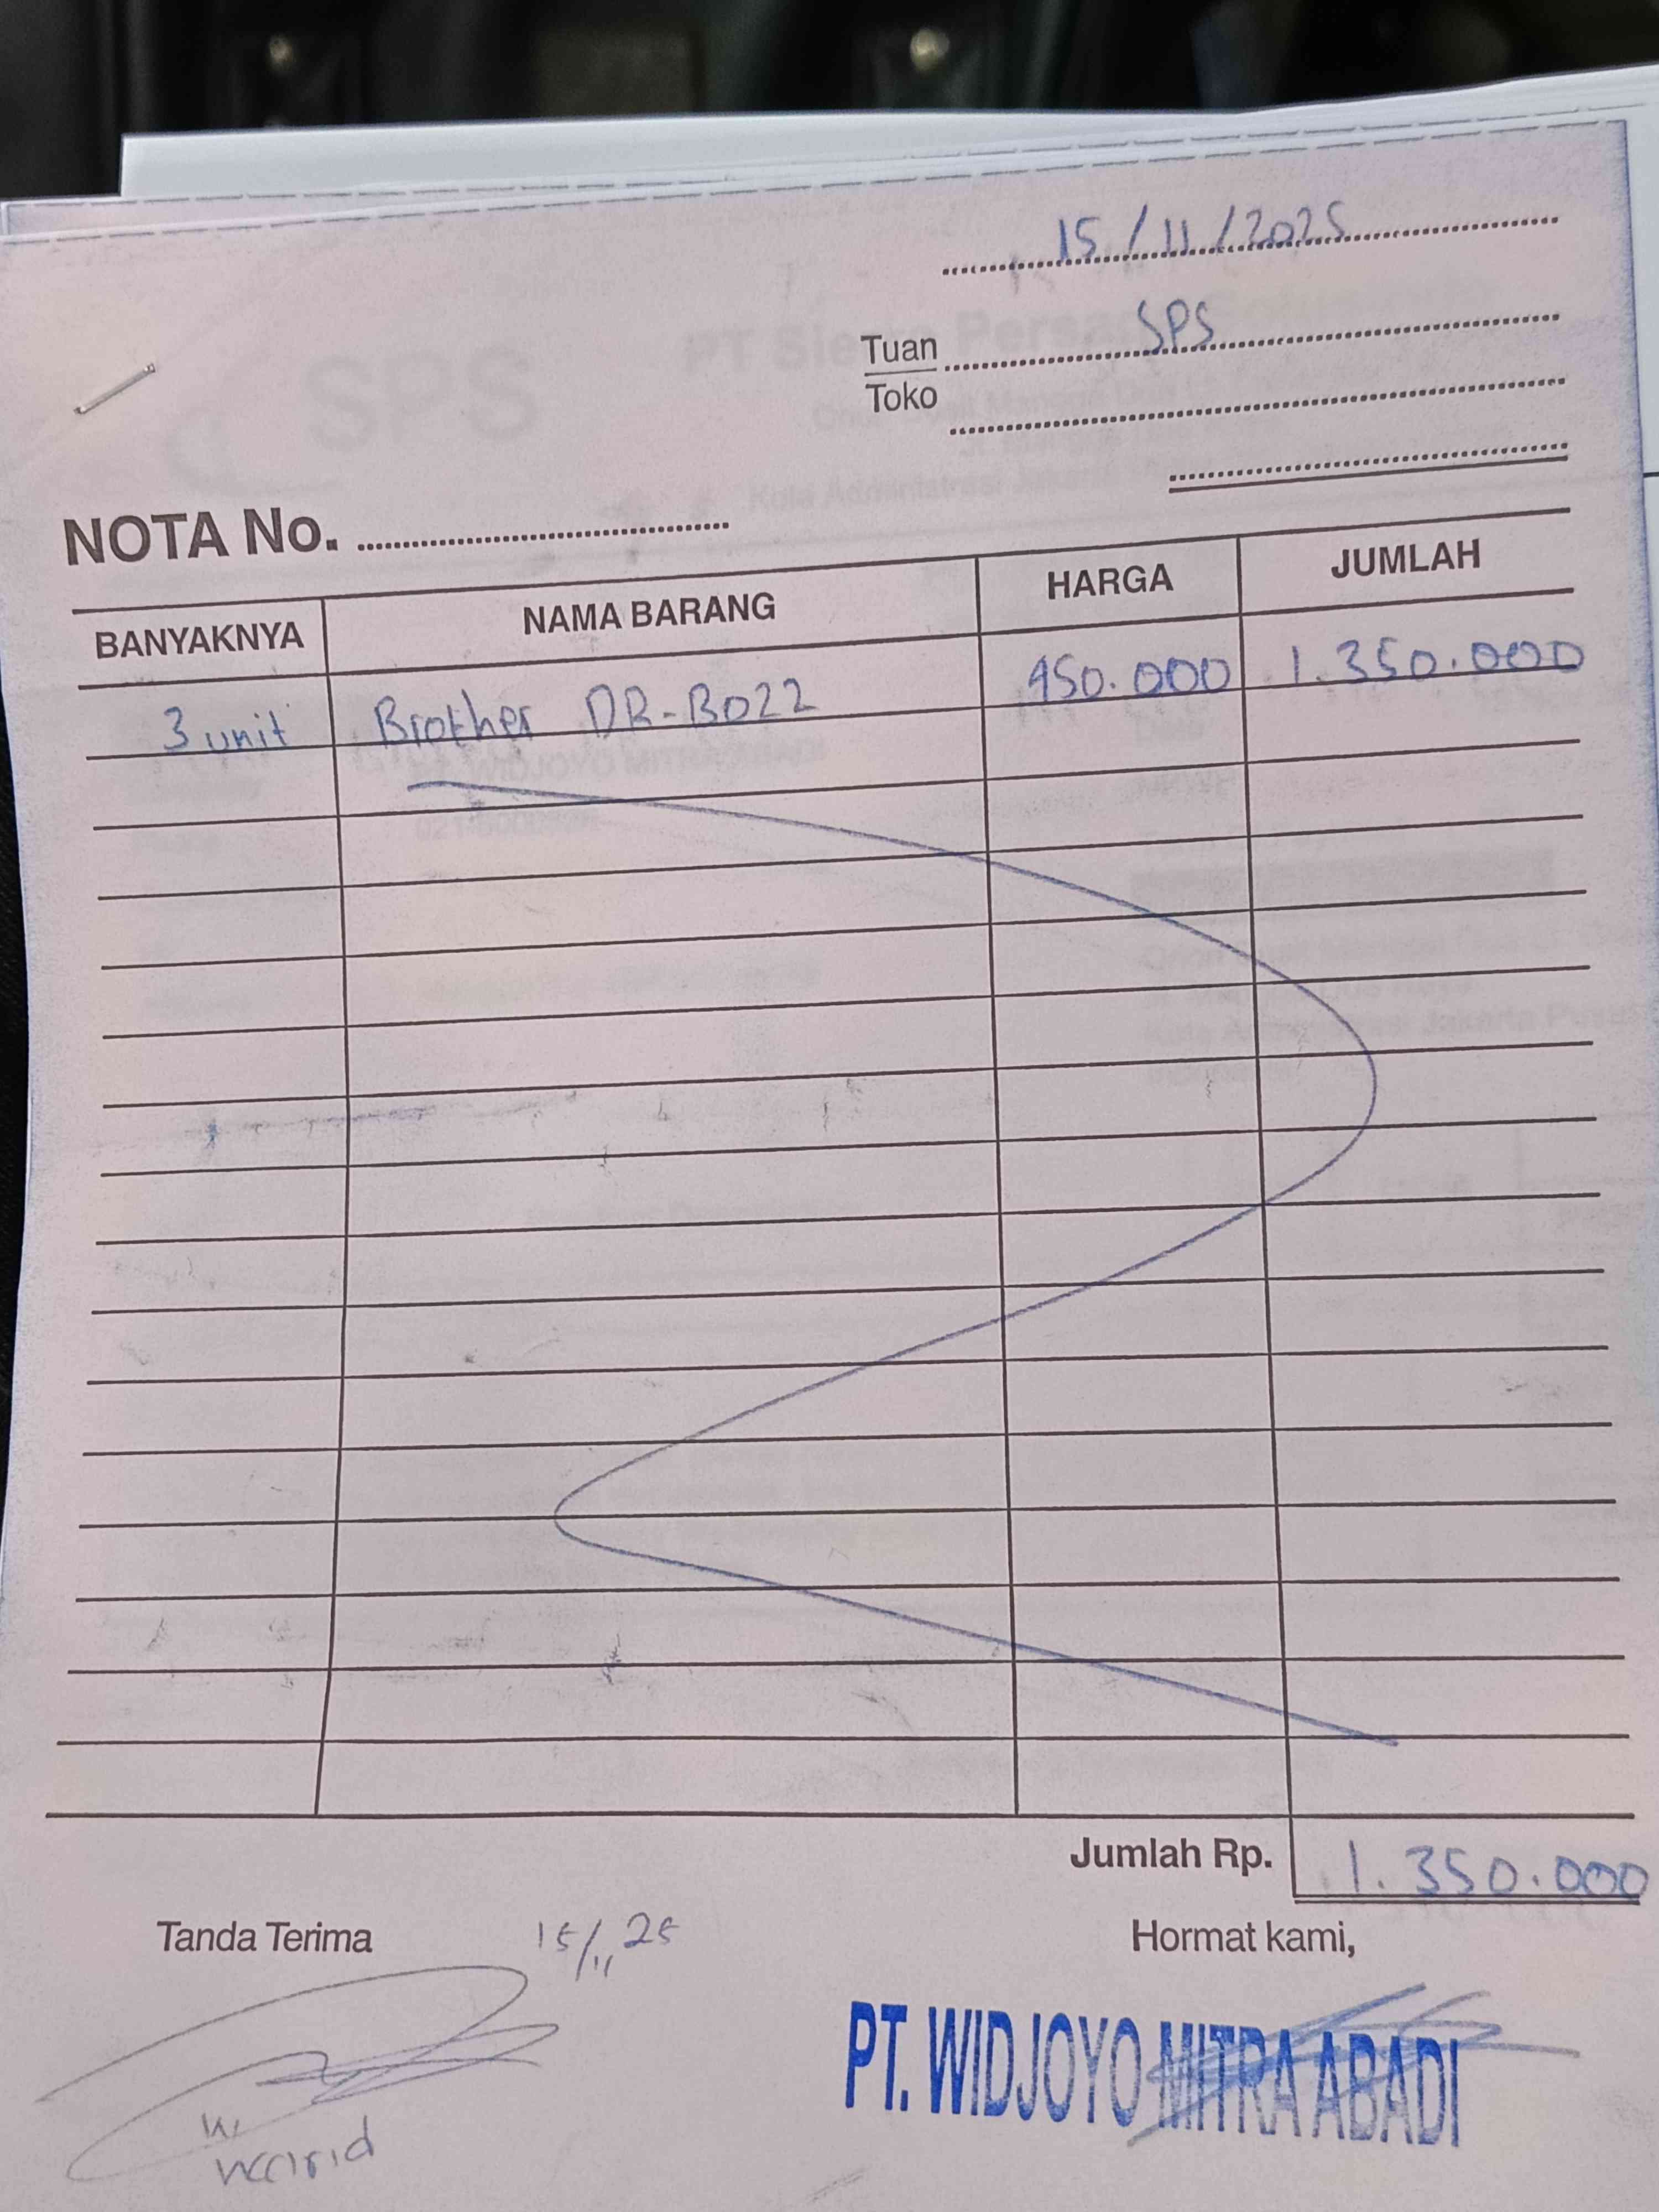 15/11/2025
Tuan SPS
Toko
NOTA No.
BANYAKNYA NAMA BARANG HARGA JUMLAH
3 unit Brother DR-B022 450.000 1.350.000
Jumlah Rp. 1.350.000
Tanda Terima 15/11 25 Hormat kami,
PT. WIDJOYO MITRA ABADI